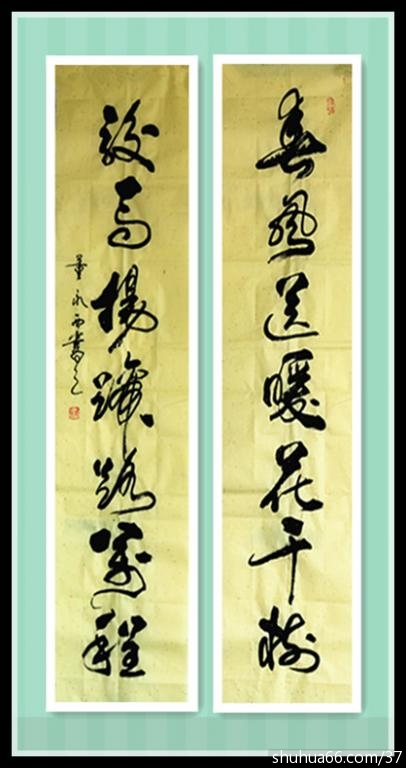 春風送暖花千樹
駿馬揚蹄路萬程
董永西書
shuhua66.com/37